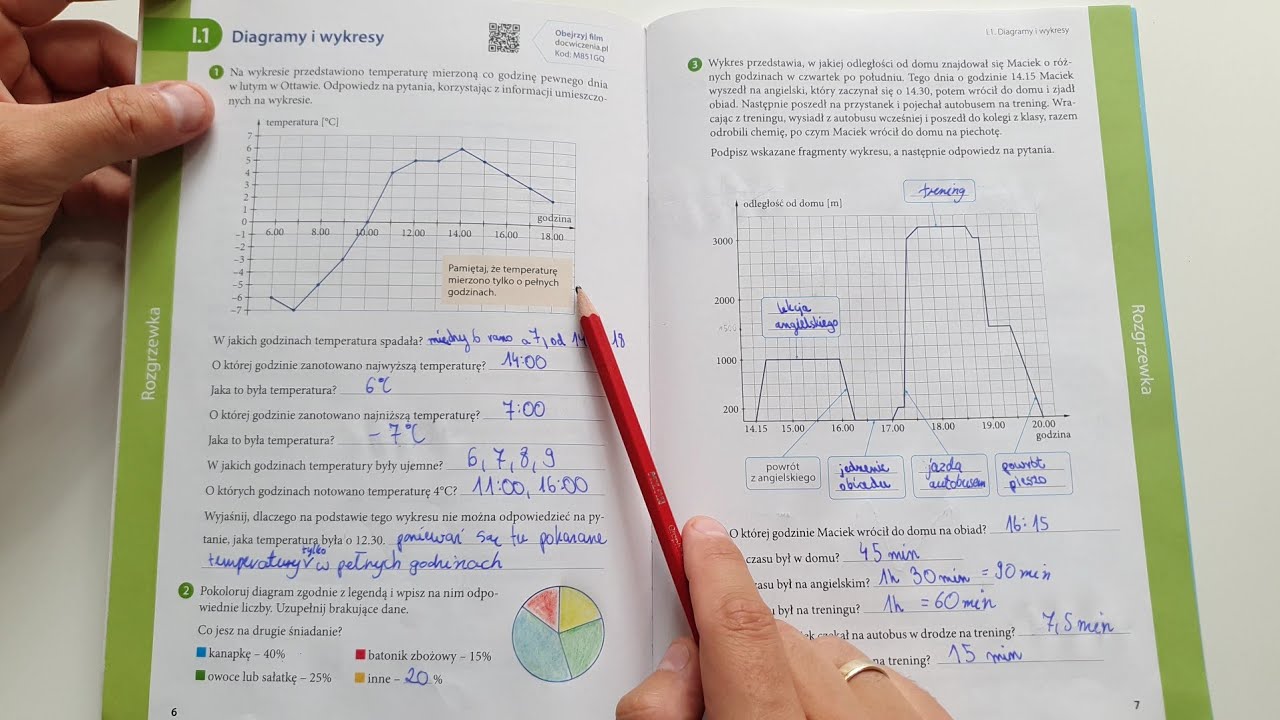 I.1 Diagramy i wykresy
Obejrzyj film
docwiczenia.pl
Kod: M8S1GQ
1 Na wykresie przedstawiono temperaturę mierzoną co godzinę pewnego dnia
w lutym w Ottawie. Odpowiedz na pytania, korzystając z informacji umieszczo-
nych na wykresie.
temperatura [°C]
7
6
5
4
3
2
1
0
−1
−2
−3
−4
−5
−6
−7
6.00 8.00 10.00 12.00 14.00 16.00 18.00
godzina
Pamiętaj, że temperaturę
mierzono tylko o pełnych
godzinach.
W jakich godzinach temperatura spadała? między 6 rano a 7, od 14 18
O której godzinie zanotowano najwyższą temperaturę? 14:00
Jaka to była temperatura? 6°C
O której godzinie zanotowano najniższą temperaturę? 7:00
Jaka to była temperatura? −7°C
W jakich godzinach temperatury były ujemne? 6, 7, 8, 9
O których godzinach notowano temperaturę 4°C? 11:00, 16:00
Wyjaśnij, dlaczego na podstawie tego wykresu nie można odpowiedzieć na py-
tanie, jaka temperatura była o 12.30. ponieważ są tu pokazane
temperatury tylko w pełnych godzinach
2 Pokoloruj diagram zgodnie z legendą i wpisz na nim odpo-
wiednie liczby. Uzupełnij brakujące dane.
Co jesz na drugie śniadanie?
kanapkę – 40% batonik zbożowy – 15%
owoce lub sałatkę – 25% inne – 20 %
6
Rozgrzewka
I.1. Diagramy i wykresy
3 Wykres przedstawia, w jakiej odległości od domu znajdował się Maciek o róż-
nych godzinach w czwartek po południu. Tego dnia o godzinie 14.15 Maciek
wyszedł na angielski, który zaczynał się o 14.30, potem wrócił do domu i zjadł
obiad. Następnie poszedł na przystanek i pojechał autobusem na trening. Wra-
cając z treningu, wysiadł z autobusu wcześniej i poszedł do kolegi z klasy, razem
odrobili chemię, po czym Maciek wrócił do domu na piechotę.
Podpisz wskazane fragmenty wykresu, a następnie odpowiedz na pytania.
trening
odległość od domu [m]
3000
2000
1500
1000
200
lekcja
angielskiego
14.15 15.00 16.00 17.00 18.00 19.00 20.00
godzina
powrót
z angielskiego
jedzenie
obiadu
jazda
autobusem
powrót
pieszo
O której godzinie Maciek wrócił do domu na obiad? 16:15
czasu był w domu? 45 min
zasu był na angielskim? 1h 30 min = 90 min
u był na treningu? 1h = 60 min
czekał na autobus w drodze na trening? 7,5 min
na trening? 15 min
7
Rozgrzewka